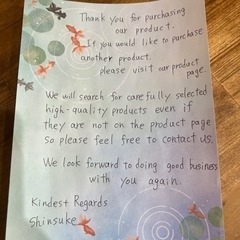 Thank you for purchasing
our product.
If you would like to purchase
another product.
please visit our product
page.
We will search for carefully selected
high-quality products even if
they are not on the product page
So please feel free to contact us.
We look forward to doing good business
with you again.
Kindest Regards
Shinsuke